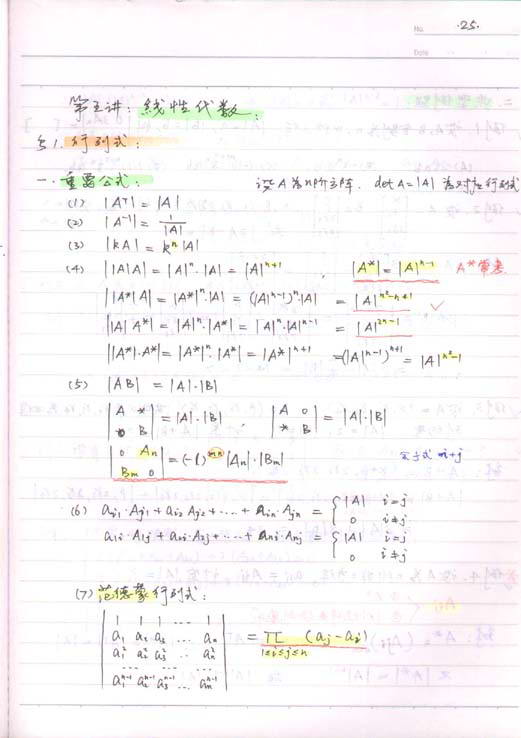 No. ·25.
Date
第五讲：线性代数：
§1. 行列式：
一. 重要公式： 设A为n阶方阵. det A = |A| 为对应行列式
(1) |Aᵀ| = |A|
(2) |A⁻¹| = 1/|A|
(3) |kA| = kⁿ|A|
(4) ||A|A| = |A|ⁿ·|A| = |A|ⁿ⁺¹ , |A*| = |A|ⁿ⁻¹ A*常考
||A*|A| = |A*|ⁿ·|A| = (|A|ⁿ⁻¹)ⁿ·|A| = |A|^(n²-n+1) ✓
||A|A*| = |A|ⁿ·|A*| = |A|ⁿ·|A|ⁿ⁻¹ = |A|²ⁿ⁻¹
||A*|·A*| = |A*|ⁿ·|A*| = |A*|ⁿ⁺¹ = (|A|ⁿ⁻¹)ⁿ⁺¹ = |A|^(n²-1)
(5) |AB| = |A|·|B|
|A *| |A 0|
|0 B| = |A|·|B| , |* B| = |A|·|B|
|0 An|
|Bm 0| = (-1)^mn |An|·|Bm| i+j
(6) ai1·Aj1 + ai2 Aj2 + ···· + ain·Ajn = { |A| i=j
0 i≠j
a1i·A1j + a2i·A2j + ···· + ani·Anj = { |A| i=j
0 i≠j
(7) 范德蒙行列式：
| 1 1 1 ···· 1 |
| a1 a2 a3 ··· an | = Π (aj - ai)
| a1² a2² a3² ··· an² | 1≤i≤j≤n
| ··· ··· ··· ··· |
| a1ⁿ⁻¹ a2ⁿ⁻¹ a3ⁿ⁻¹ ··· anⁿ⁻¹ |